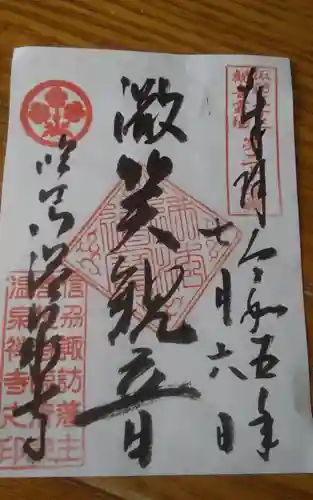 奉拝 令和五年
七月六日
微笑観音
臨江山温泉寺
信刕諏訪藩主
温泉禅寺之印